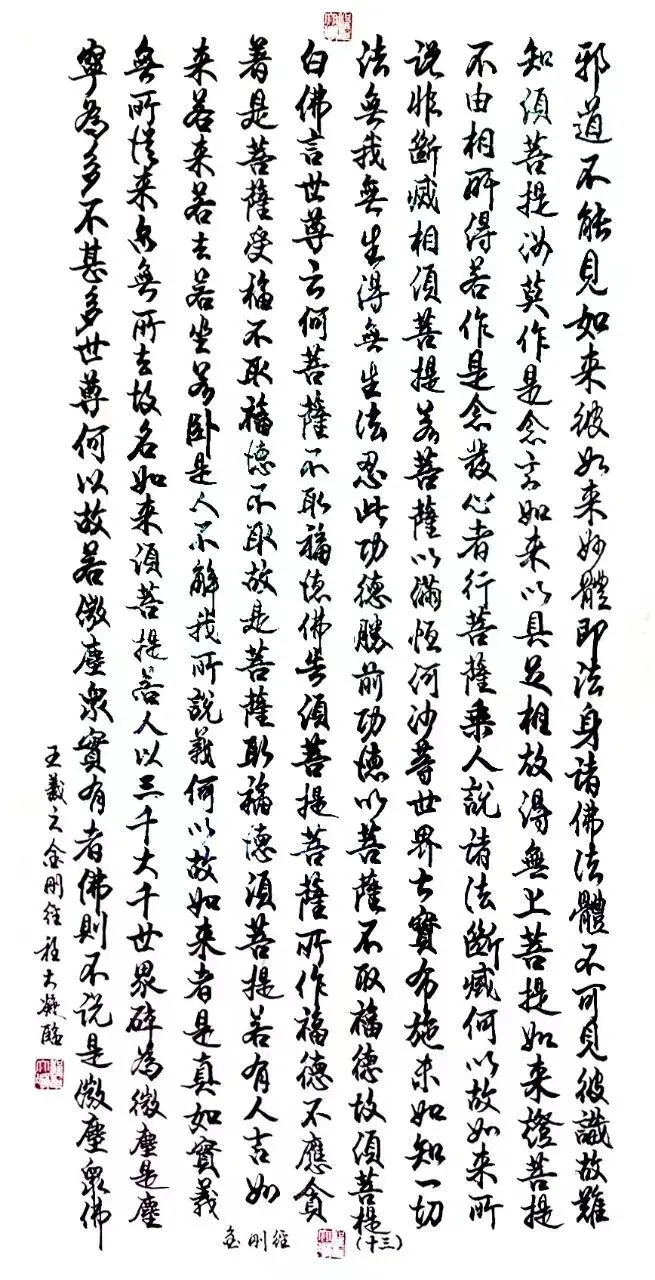 邪道不能見如来彼如来妙體即法身諸佛法體不可見彼識故難
知須菩提汝莫作是念言如来以具足相故得無上菩提如来證菩提
不由相所得若作是念發心者行菩薩乘人說諸法斷滅何以故如来所
说非斷滅相須菩提若菩薩以滿恒河沙等世界七寶布施未如知一切
法無我無生得無生法忍此功德勝前功德以菩薩不取福德故須菩提
白佛言世尊云何菩薩不取福德佛告須菩提菩薩所作福德不應貪
着是菩薩受福不取福德不取故是菩薩取福德須菩提若有人言如
来若来若去若坐若卧是人不解我所說義何以故如来者是真如實義
無所從来亦無所去故名如来須菩提若人以三千大千世界碎為微塵是塵
寧為多不甚多世尊何以故若微塵眾實有者佛則不说是微塵眾佛
王羲之金刚经程大凝臨
金刚经
(十三)